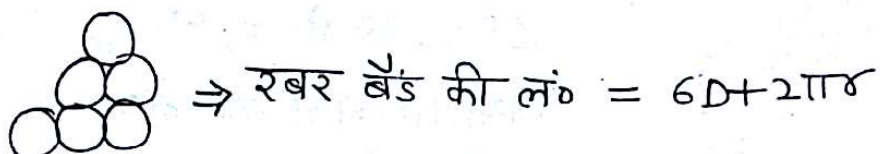 ⇒ रबर बैंड की लं० = 6D+2πr